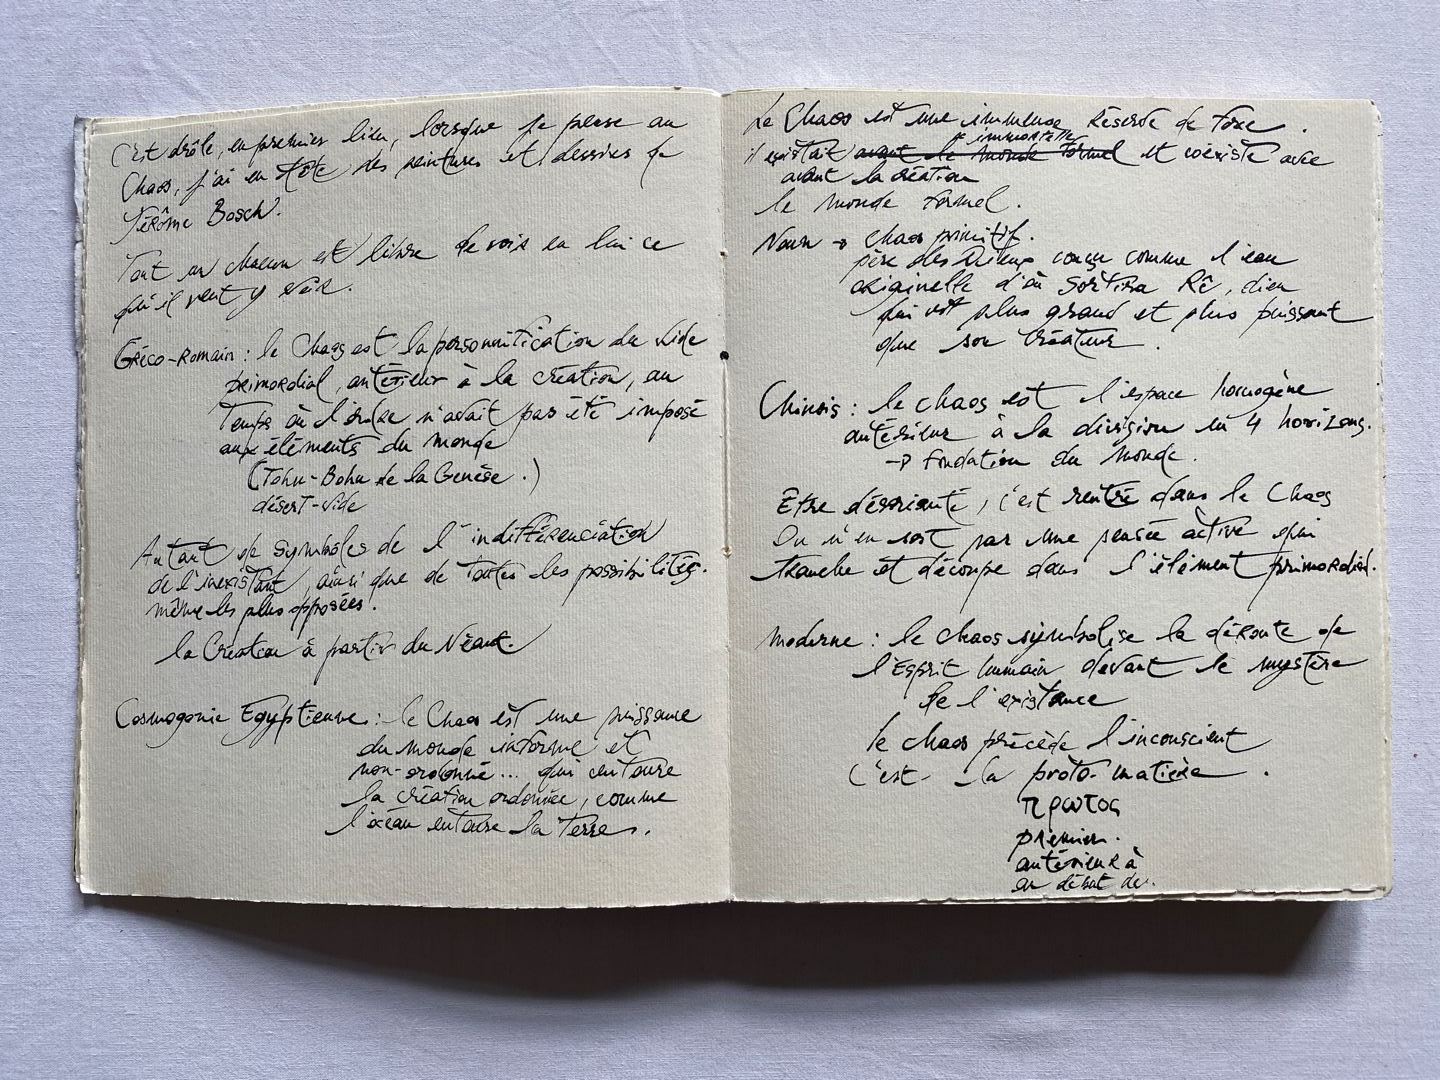 C'est drôle, en premier lieu, lorsque je pense au
Chaos, j'ai en tête des peintures et dessins de
Jérôme Bosch.
Tout un chacun est libre de voir en lui ce
qu'il veut y voir.
Gréco-Romain : le Chaos est la personnification du vide
primordial, antérieur à la création, au
Temps où l'ordre n'avait pas été imposé
aux éléments du monde
(Tohu-Bohu de la Genèse.)
désert-vide
Autant de symboles de l'indifférenciation
de l'inexistant, ainsi que de toutes les possibilités.
même les plus opposées.
la Création à partir du Néant.
Cosmogonie Egyptienne : le Chaos est une puissance
du monde informe et
non-ordonné... qui entoure
la création ordonnée, comme
l'océan entoure la Terre.
Le Chaos est une immense Réserve de force.
immortelle
il existait avant le monde formel et coexiste avec
avant la création
le monde formel.
Noun → chaos primitif.
père des Dieux conçu comme l'eau
originelle d'où Sortira Rê, dieu
qui est plus grand et plus puissant
que son créateur.
Chinois : le chaos est l'espace homogène
antérieur à la division en 4 horizons.
→ fondation du Monde.
Etre désorienté, c'est rentré dans le Chaos
On n'en sort par une pensée active qui
tranche et découpe dans l'élément primordial.
Moderne : le chaos symbolise la déroute de
l'Esprit humain devant le mystère
de l'existance
le chaos précède l'inconscient
C'est la proto-matière.
πρωτος
premier.
antérieur à
au début de.